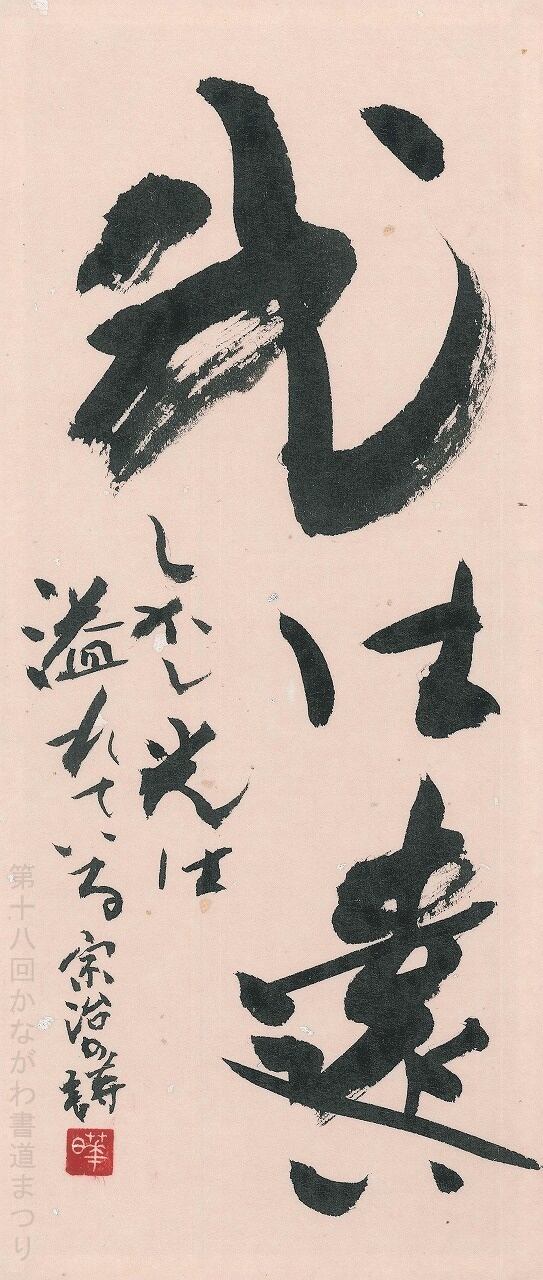 光は遠い
しかし光は
溢れている 宗治の詩
曄
第十八回かながわ書道まつり